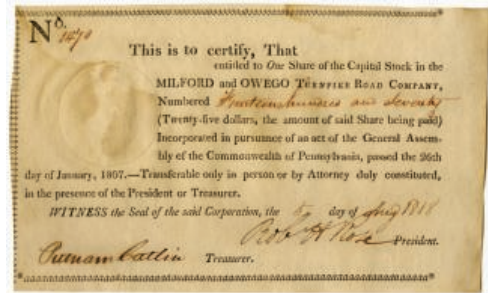 No.
1470
This is to certify, That
entitled to One Share of the Capital Stock in the
MILFORD and OWEGO TURNPIKE ROAD COMPANY,
Numbered Fourteen hundred and seventy
(Twenty-five dollars, the amount of said Share being paid)
Incorporated in pursuance of an act of the General Assem-
bly of the Commonwealth of Pennsylvania, passed the 26th
day of January, 1807.—Transferable only in person or by Attorney duly constituted,
in the presence of the President or Treasurer.
WITNESS the Seal of the said Corporation, the day of Aug 1818
Rob H Rose President.
Putnam Catlin Treasurer.